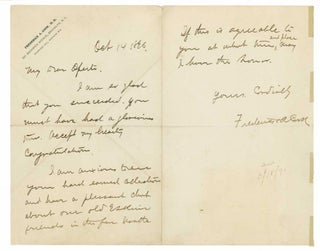 FREDERICK A. COOK, M.D.
Oct 14 1896
My dear Operti,
I am so glad
that you succeeded. You
must have had a glorious
time. Accept my hearty
Congratulation.
I am anxious to see
your hard earned collection
and have a pleasant chat
about our old Eskimo
friends in the far North
If this is agreeable to
and place
you at what time, may
I have the honor.
Yours Cordially
Frederick A Cook